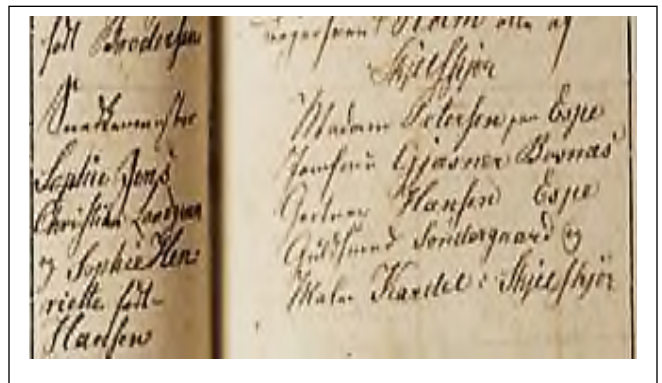 født Brodersen
Snedkermester
Sophie Jens
Christian
og Sophie Hen-
riette født
Hansen
Holm alle af
Skjelskjør
Madam Petersen paa Espe
Jomfrue Gjasner
Gartner Hansen Espe
Guldsmed Søndergaard og
Maler Kardel i Skjelskjør